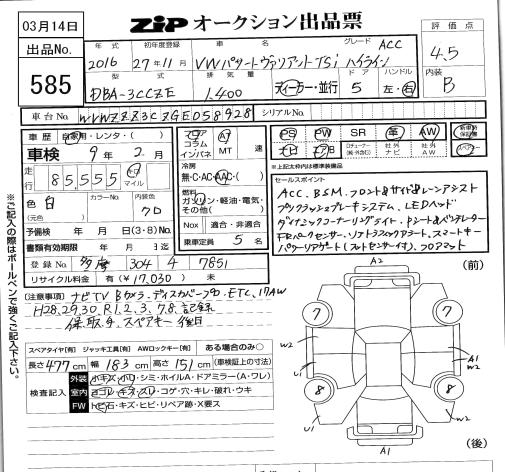 03月14日
ZiP オークション出品票
出品No.
585
年式 初年度登録 車名 グレード
2016 27年11月 VWパサートヴァリアントTSi ハイライン ACC
型式 排気量 ドア ハンドル
DBA-3CCZE 1,400 ディーラー・並行 5 左・右
評価点
4.5
内装
B
車台No. WVWZZZ3CZGE058928 シリアルNo.
車歴 自家用・レンタ・( )
車検 9年 2月
走行 85,555 km マイル
色 白 (元色) カラーNo. 内装色 クロ
予備検 年 月 日(3・8) No.
書類有効期限 年 月 日迄
登録No. 多摩 304 ち 7851
リサイクル料金 有(¥17,030) 未
フロア コラム インパネ AT MT 速
冷房 無・C・AC・AAC・( )
燃料 ガソリン・軽油・電気・その他( )
Nox 適合・非適合
乗車定員 5 名
PS PW SR 革 AW 新車時保証書
ナビ AW スペアキー
※上記太枠内は標準装備品
セールスポイント
ACC. BSM. フロント&サイド&レーンアシスト
プリクラッシュブレーキシステム. LEDヘッド
ダイナミックコーナーリングライト. シート&ベンチレーター
FRパークセンサー. リアトラフィックアラート. スマートキー
パワーリアゲート(フットセンサー付). フロアマット
(注意事項) ナビTV Bカメラ. ディスカバープロ. ETC. 17AW
H28. 29. 30. R1. 2. 3. 7. 8. 記録
保. 取. 分. スペアキー 後日
スペアタイヤ[有] ジャッキ工具[有] AWロックキー[有] ある場合のみ○
長さ 477 cm 幅 183 cm 高さ 151 cm (車検証上の寸法)
検査記入
外装 小キズ・小ワレ・シミ・ホイルA・ドアミラー(A・ワレ)
室内 ヨゴレ・キズ・スレ・コゲ・穴・キレ・破れ・ウキ
FW トビ石・キズ・ヒビ・リペア跡・X要ス
※ご記入の際はボールペンで強くご記入下さい。
A2 (前)
7 7
W2 W2
U1 A1
8 8
U1 W2
A1 (後)